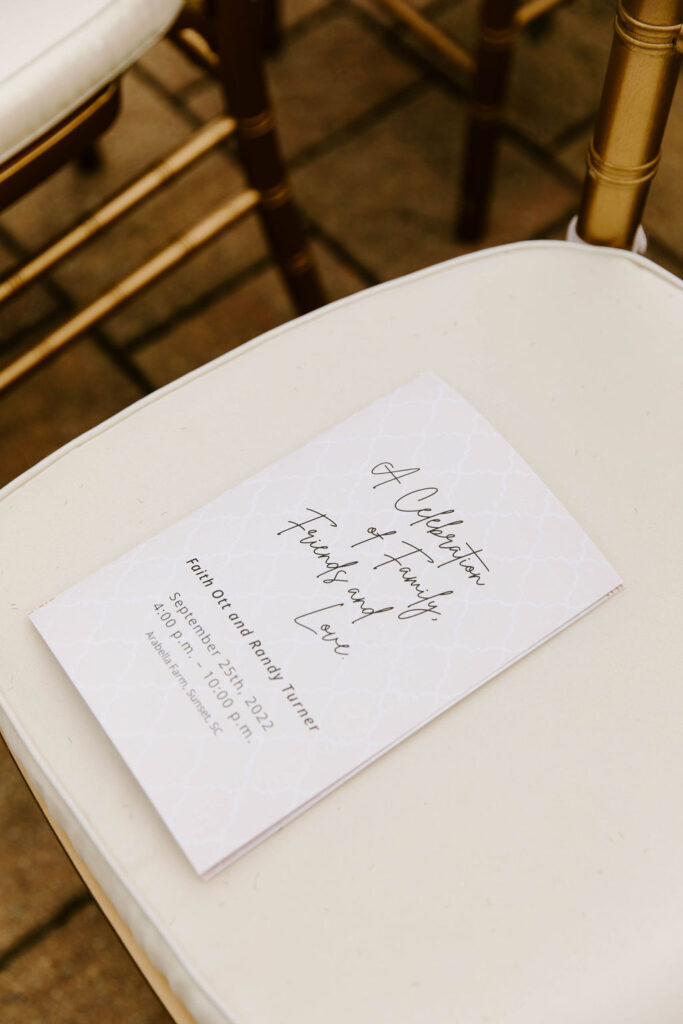 A Celebration
of Family,
Friends and
Love.
Faith Ott and Randy Turner
September 25th, 2022
4:00 p.m. – 10:00 p.m.
Arabella Farm, Sunset, SC